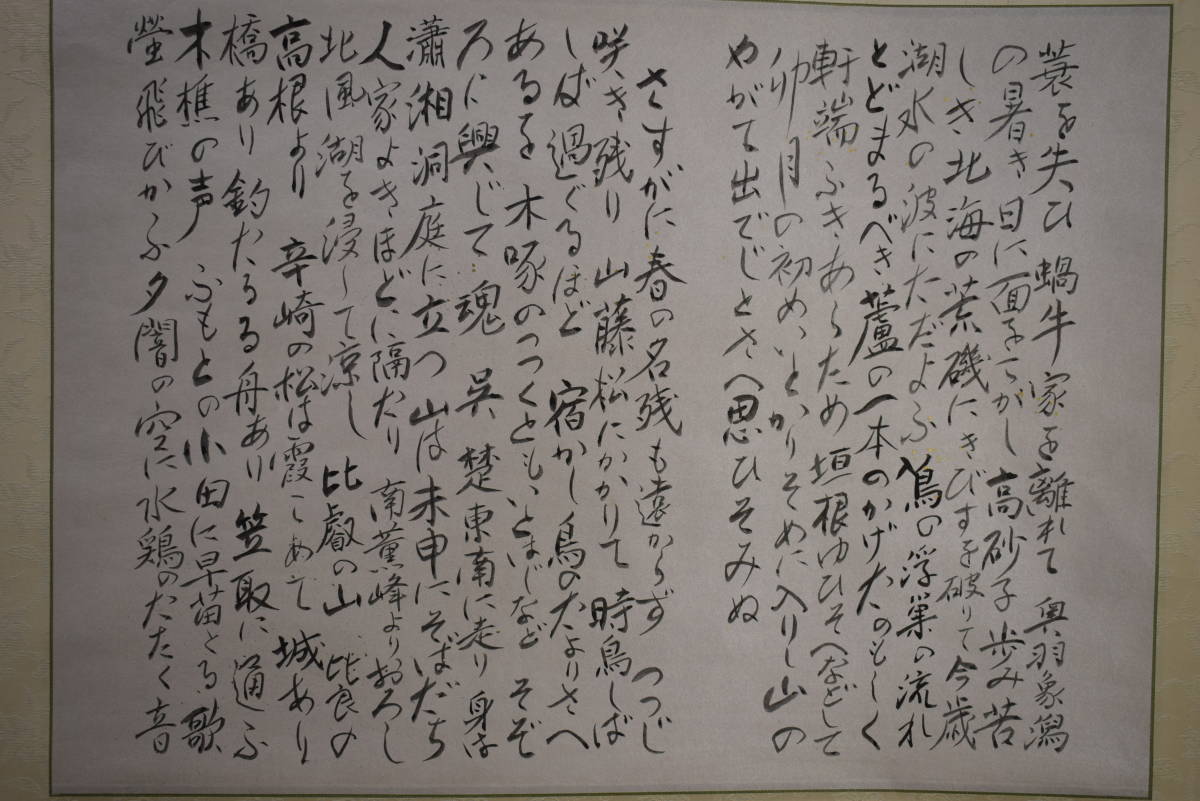 蓑を失ひ 蝸牛 家を離れて 奥羽象潟
の暑き日に面をこがし 高砂子歩み苦
しき北海の荒磯にきびすを破りて 今歳
湖水の波にただよふ 鳰の浮巣の流れ
とどまるべき 蘆の一本のかげたのもしく
軒端ふきあらため 垣根ゆひそへなどして
卯月の初めいとかりそめに入りし山の
やがて出でじとさへ思ひそみぬ
さすがに春の名残も遠からず つつじ
咲き残り 山藤松にかかりて 時鳥しば
しば過ぐるほど 宿かし鳥のたよりさへ
あるを 木啄のつつくともいとはじなど そぞ
ろに興じて 魂 呉楚東南に走り 身は
瀟湘洞庭に立つ 山は未申にそばだち
人家よきほどに隔たり 南薫峰よりおろし
北風湖を浸して涼し 比叡の山 比良の
高根より 辛崎の松は霞こめて 城あり
橋あり 釣たるる舟あり 笠取に通ふ
木樵の声 ふもとの小田に早苗とる歌
螢飛びかふ夕闇の空に水鶏のたたく音